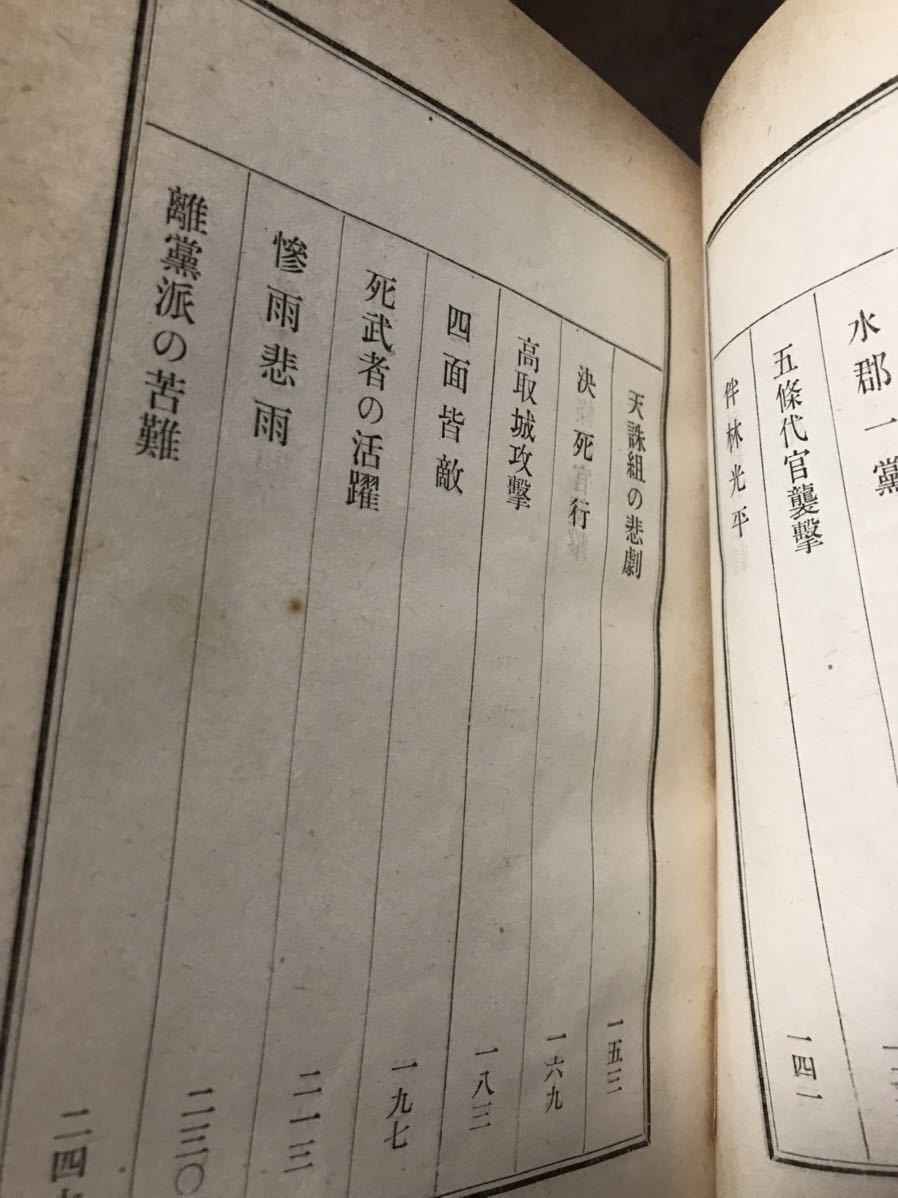 水郡一黨
五條代官襲擊
伴林光平 一四二
天誅組の悲劇 一五三
決死行 一六九
高取城攻擊 一八三
四面皆敵 一九七
死武者の活躍 二一三
慘雨悲雨 二三〇
離黨派の苦難 二四